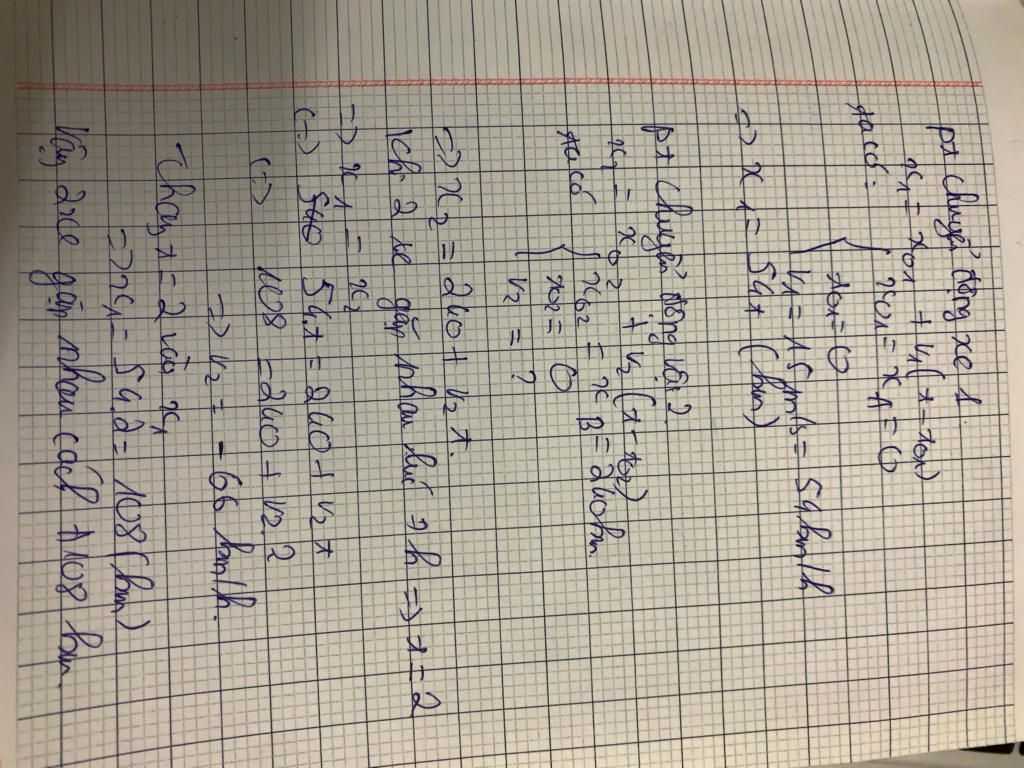 pt chuyển động xe 1.
x₁ = x₀₁ + v₁(t - t₀₁)
ta có: { x₀₁ = x_A = 0
t₀₁ = 0
v₁ = 15 m/s = 54 km/h
=> x₁ = 54t (km)
pt chuyển động vật 2
x₂ = x₀₂ + v₂(t - t₀₂)
ta có { x₀₂ = x_B = 240km
t₀₂ = 0
v₂ = ?
=> x₂ = 240 + v₂t.
khi 2 xe gặp nhau lúc 2h => t = 2
=> x₁ = x₂
(=) 54.t = 240 + v₂t
(=) 108 = 240 + v₂.2
=> v₂ = - 66 km/h.
Thay t = 2 vào x₁
=> x₁ = 54.2 = 108 (km)
Vậy 2 xe gặp nhau cách A 108 km.